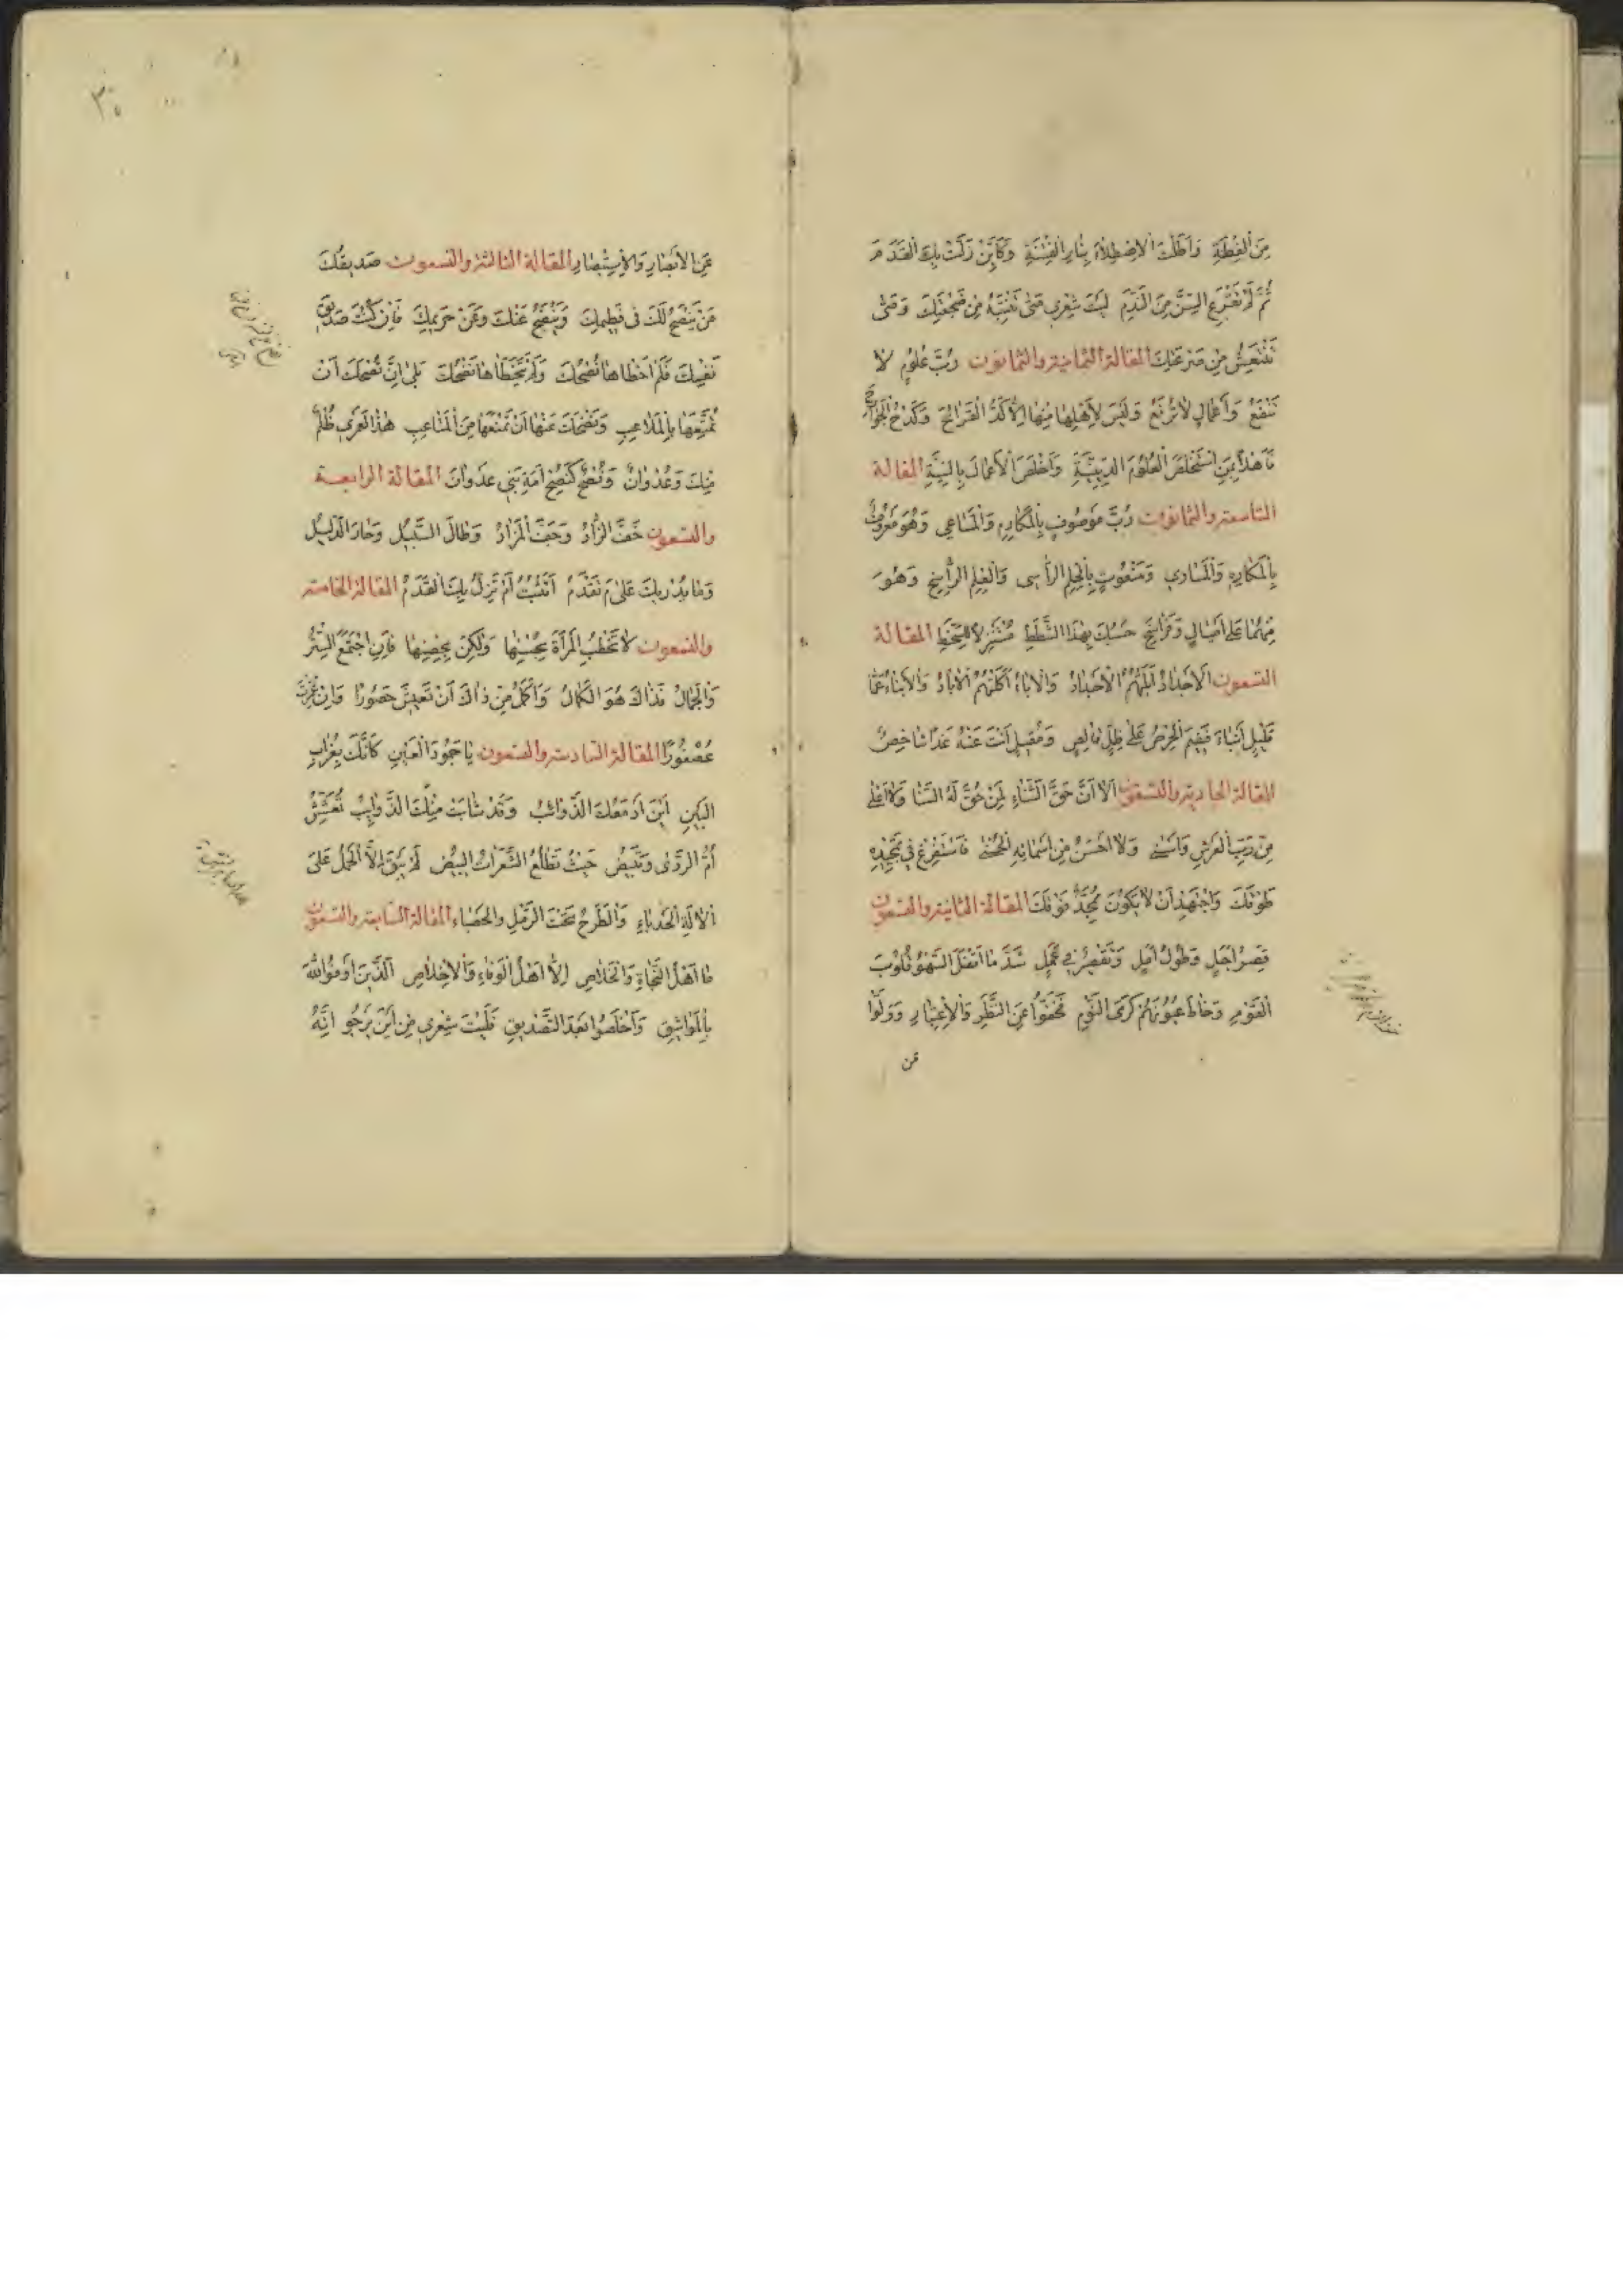 مِنَ الْفِطْنَةِ وَاَطَلْتَ الْاِصْطِلَاءَ بِنَارِ الْفِتْنَةِ وَكَاَيِّنْ زَلَّتْ بِكَ الْقَدَمُ
ثُمَّ لَمْ تَقْرَعِ السِّنَّ مِنَ النَّدَمِ لَيْتَ شِعْرِي مَتٰى تَنْتَبِهُ مِنْ ضَجْعَتِكَ وَمَتٰى
تَنْتَعِشُ مِنْ صَرْعَتِكَ المقالة الثامنة والثمانون رُبَّ عُلُومٍ لَا
تَنْفَعُ وَاَعْمَالٍ لَا تُرْفَعُ وَلَيْسَ لِاَهْلِهَا مِنْهَا اِلَّا كَدُّ الْقَرَائِحِ وَكَدْحُ الْجَوَارِحِ
مَا هٰذَا بِمَنِ اسْتَخْلَصَ الْعُلُومَ الدِّينِيَّةَ وَاَخْلَصَ الْاَعْمَالَ بِالنِّيَّةِ المقالة
التاسعة والثمانون رُبَّ مَوْصُوفٍ بِالْمَكَارِمِ وَالْمَسَاعِي وَهُوَ مَعْرُوفٌ
بِالْمَكَارِهِ وَالْمَسَاوِي وَمَنْعُوتٍ بِالْحِلْمِ الرَّاسِي وَالْعِلْمِ الرَّاسِخِ وَهُوَ
مِنْهُمَا عَلٰى اَمْيَالٍ وَفَرَاسِخَ حَسْبُكَ بِهٰذَا الشَّطَطِ مُسْتَنْزِلًا لِلسَّخَطِ المقالة
التسعون اَلْاَجْدَادُ اَبْلَتْهُمُ الْاَجْدَادُ وَالْاٰبَاءُ اَكَلَتْهُمُ الْاٰبَادُ وَالْاَبْنَاءُ عَمَّا
قَلِيلٍ اَنْبَاءٌ فَفِيمَ الْحِرْصُ عَلٰى ظِلٍّ قَالِصٍ وَمَقِيلٍ اَنْتَ عَنْهُ غَدًا شَاخِصٌ
المقالة الحادية والتسعون اَلَا اَنَّ حَقَّ الثَّنَاءِ لِمَنْ حُقَّ لَهُ السَّنَا وَلَا اَعْلٰى
مِنْ رَبِّ الْعَرْشِ وَاَسْنٰى وَلَا اَحْسَنُ مِنْ اَسْمَائِهِ الْحُسْنٰى فَاسْتَفْرِغْ فِي تَمْجِيدِهِ
طَوْقَكَ وَاجْتَهِدْ اَنْ لَا يَكُونَ مُمَجِّدٌ فَوْقَكَ المقالة الثانية والتسعون
قِصَرُ اَجَلٍ وَطُولُ اَمَلٍ وَتَقْصِيرٌ فِي عَمَلٍ شَدَّ مَا اَقْفَلَ السَّهْوُ قُلُوبَ
الْقَوْمِ وَخَاطَ عُيُونَهُمْ كَرَى النَّوْمِ فَخَفُّوا عَنِ النَّظَرِ وَالْاِعْتِبَارِ وَوَلَّوْا
عن
٣٥
عَنِ الْاَبْصَارِ وَالْاِسْتِبْصَارِ المقالة الثالثة والتسعون صَدِيقُكَ
مَنْ يَنْصَحُ لَكَ فِي فَطِيمِكَ وَيَنْضَحُ عَنْكَ وَعَنْ حَرِيمِكَ فَاِنْ كُنْتَ صَدِيقَ
نَفْسِكَ فَلِمَ اَخْطَاهَا نُصْحُكَ وَلِمَ تَخَطَّاهَا نَضْحُكَ بَلٰى اِنَّ نُصْحَكَ اَنْ
تُمَتِّعَهَا بِالْمَلَاعِبِ وَنَضْحَكَ عَنْهَا اَنْ تَمْنَعَهَا مِنَ الْمَتَاعِبِ هٰذَا لَعَمْرِي ظُلْمٌ
مِنْكَ وَعُدْوَانٌ وَنُصْحٌ كَنُصْحِ اَمَةِ بَنِي عَدْوَانَ المقالة الرابعة
والتسعون خَفَّ الزَّادُ وَجَفَّ الْمَزَادُ وَطَالَ السَّبِيلُ وَحَارَ الدَّلِيلُ
وَمَا يُدْرِيكَ عَلٰى مَ تَقْدَمُ اَتَثْبُتُ اَمْ تَزِلُّ بِكَ الْقَدَمُ المقالة الخامسة
والتسعون لَا تَخْطُبِ الْمَرْاَةَ لِحُسْنِهَا وَلٰكِنْ لِحِصْنِهَا فَاِنِ اجْتَمَعَ السِّتْرُ
وَالْجَمَالُ فَذَاكَ هُوَ الْكَمَالُ وَاَكْمَلُ مِنْ ذَاكَ اَنْ تَعِيشَ حَصُورًا وَاِنْ عُمِّرْتَ
عُصْفُورًا المقالة السادسة والتسعون يَا جَمُودَ الْعَيْنِ كَاَنَّكَ بِغُرَابِ
الْبَيْنِ اَيْنَ اَدْمُعُكَ الذَّوَائِبُ وَقَدْ شَابَتْ مِنْكَ الذَّوَائِبُ تُعَشِّشُ
اُمُّ الرَّدٰى وَتَبِيضُ حَيْثُ تَطْلُعُ الشَّعَرَاتُ الْبِيضُ لَمْ يَبْقَ اِلَّا الْحَمْلُ عَلَى
الْاٰلَةِ الْحَدْبَاءِ وَالطَّرْحُ تَحْتَ الرَّمْلِ وَالْحَصْبَاءِ المقالة السابعة والتسعون
مَا اَهْلُ النَّجَاةِ وَالْخَلَاصِ اِلَّا اَهْلُ الْوَفَاءِ وَالْاِخْلَاصِ اَلَّذِينَ اَوْفَوُا اللّٰهَ
بِالْمَوَاثِيقِ وَاَخْلَصُوا بَعْدَ التَّصْدِيقِ فَلَيْتَ شِعْرِي مِنْ اَيْنَ يَرْجُو اَنَّهُ